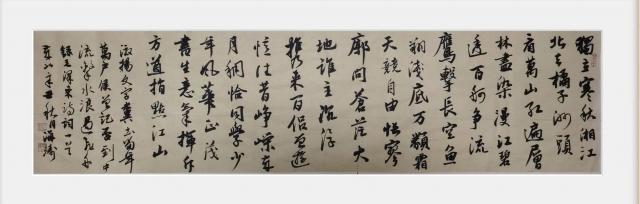 獨立寒秋湘江
北去橘子洲頭
看萬山紅遍層
林盡染漫江碧
透百舸爭流
鷹擊長空魚
翔淺底萬類霜
天競自由悵寥
廓問蒼茫大
地誰主沉浮
攜來百侶曾遊
憶往昔崢嶸歲
月稠恰同學少
年風華正茂
書生意氣揮斥
方遒指點江山
激揚文字糞土當年
萬户侯曾記否到中
流擊水浪遏飛舟
錄毛澤東詩詞一首
辛丑秋月海濤